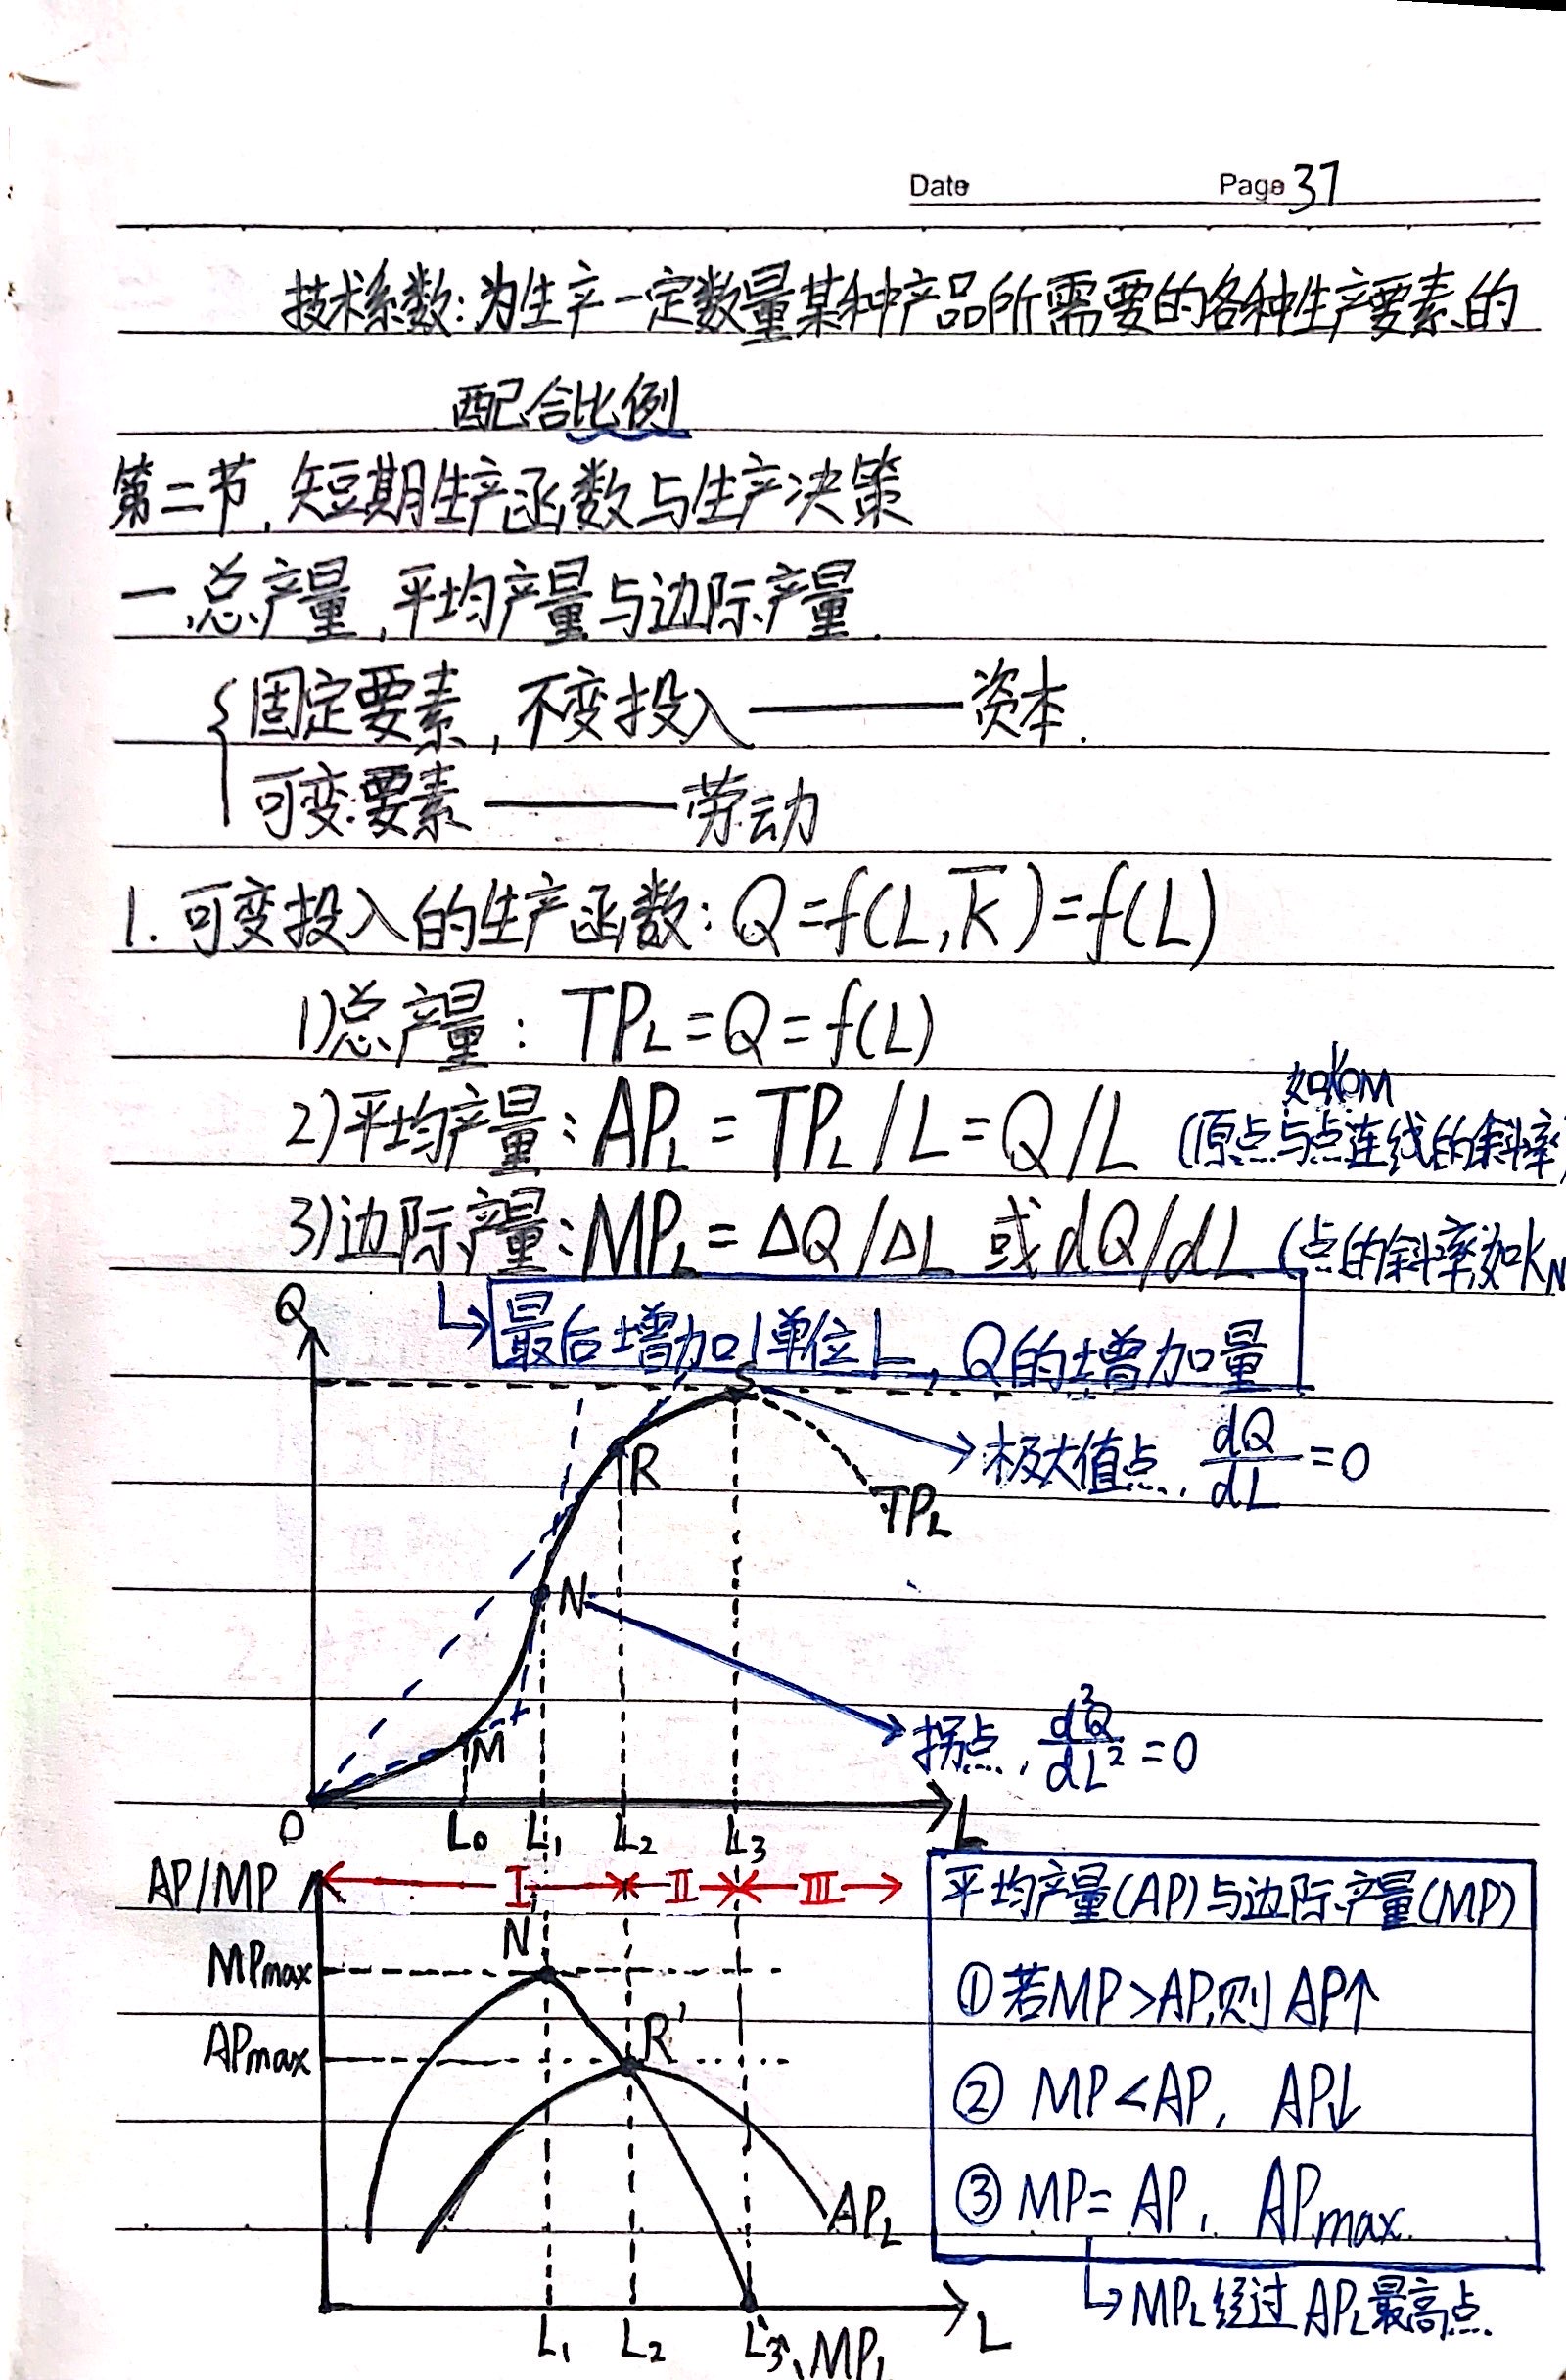 Date Page 37
技术系数:为生产一定数量某种产品所需要的各种生产要素的
配合比例
第二节,短期生产函数与生产决策
一.总产量,平均产量与边际产量.
{固定要素,不变投入——资本.
可变要素——劳动
1.可变投入的生产函数:Q=f(L,K̅)=f(L)
1)总产量: TP_L=Q=f(L)
如k_OM
2)平均产量:AP_L=TP_L/L=Q/L (原点与点连线的斜率)
3)边际产量:MP_L=ΔQ/ΔL 或dQ/dL (点的斜率,如k_N
↳最后增加1单位L,Q的增加量
Q
S
极大值点, dQ/dL=0
R
TP_L
N
拐点, d²Q/dL²=0
M
O L₀ L₁ L₂ L₃ L
AP/MP I II III
N'
MPmax
R'
APmax
AP_L
L₁ L₂ L₃ MP_L L
平均产量(AP)与边际产量(MP)
①若MP>AP,则AP↑
② MP<AP, AP↓
③ MP=AP, APmax.
↳MP_L经过AP_L最高点.